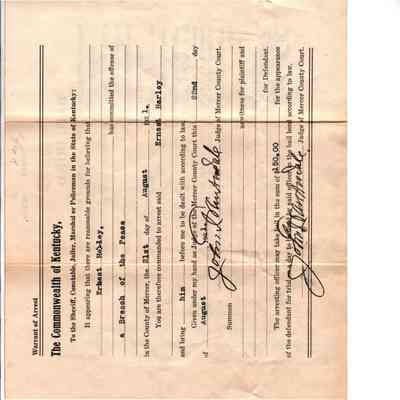 Warrant of Arrest
The Commonwealth of Kentucky,
To the Sheriff, Constable, Jailer, Marshal or Policemen in the State of Kentucky:
It appearing that there are reasonable grounds for believing that
Erbest Hobley,
has committed the offense of
a Breach of the Peace
in the County of Mercer, the 21st day of August 191
You are therefore commanded to arrest said Ernest Harley
and bring him before me to be dealt with according to law.
Given under my hand as Judge of the Mercer County Court this 22nd day
of August
Judge of Mercer County Court.
Summon as witness for plaintiff and
for Defendant.
The arresting officer may take bail in the sum of $ 50.00 for the appearance
of the defendant for trial said officer the bail bond according to law.
Judge of Mercer County Court.